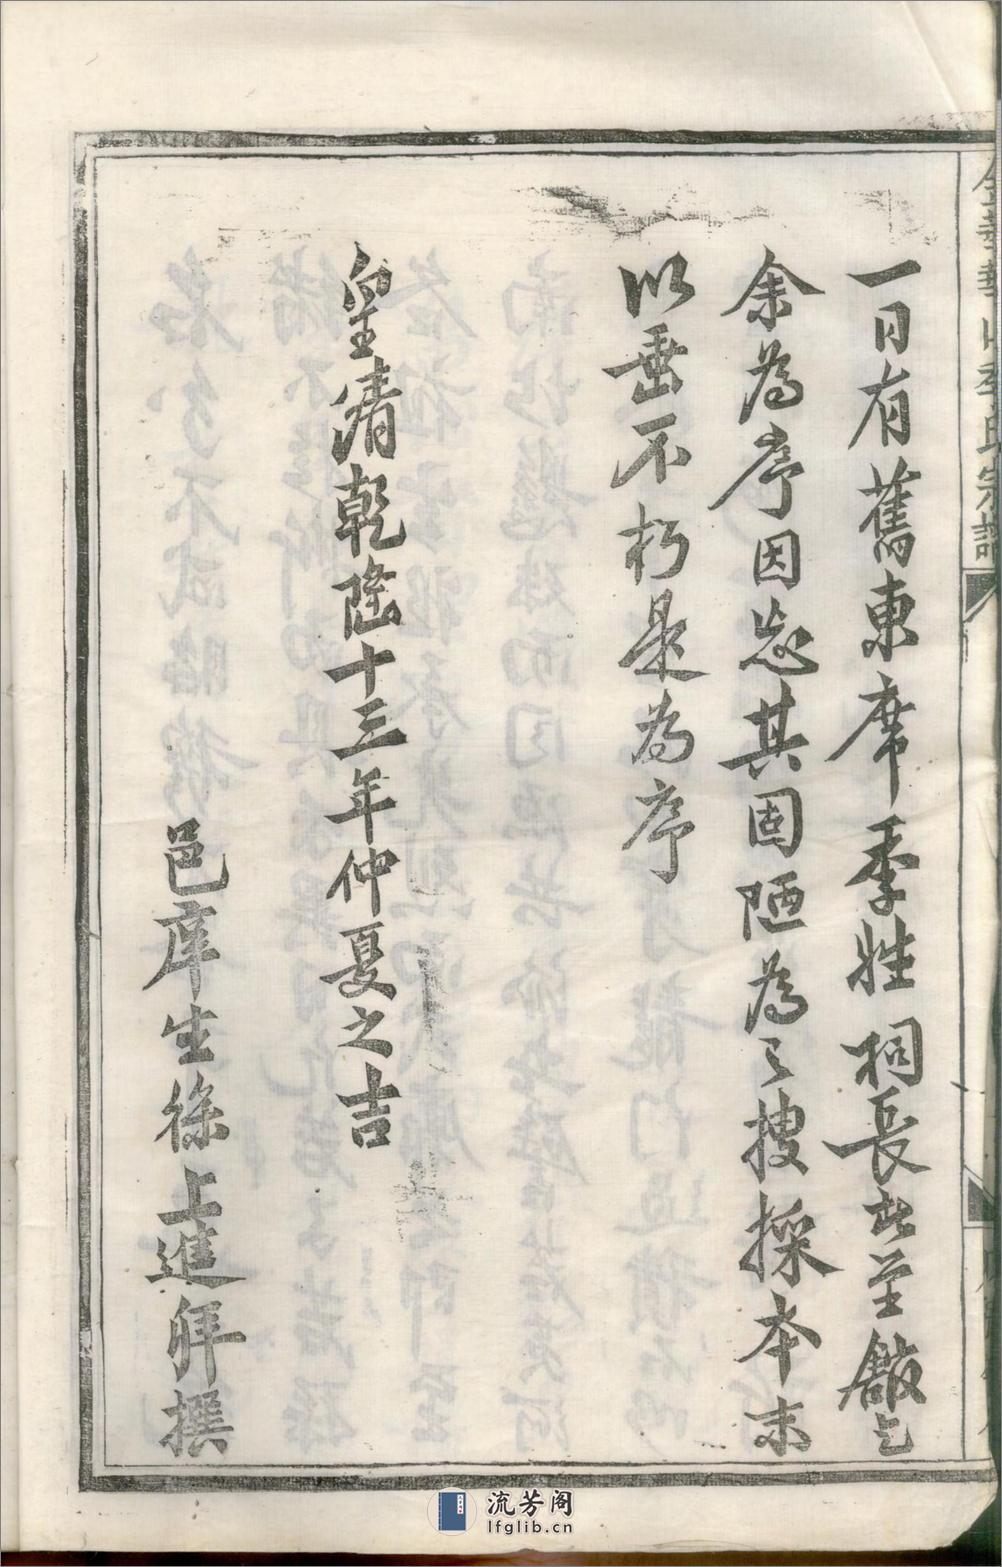 一日有舊東席季甡祠長者至敝乞
余為序因忘其固陋為之搜採本末
以垂不朽是為序
皇清乾隆十三年仲夏之吉
邑庠生徐上進拜撰
季氏宗譜
流芳阁
lfglib.cn